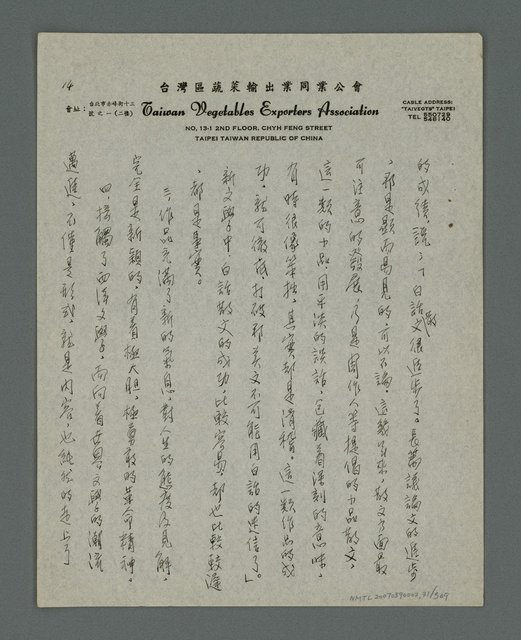 14
台灣區蔬菜輸出業同業公會
會址：台北市赤峰街十三號之一(二樓)
Taiwan Vegetables Exporters Association
CABLE ADDRESS:
"TAIVEGTS" TAIPEI
TEL 550729
546140
NO, 13-1 2ND FLOOR. CHYH FENG STREET
TAIPEI TAIWAN REPUBLIC OF CHINA
的成績，說：「白話散文很進步了。長篇議論文的進步
，那是顯而易見的，可以不論。這幾年來，散文方面最
可注意的發展，乃是周作人等提倡的小品散文，
這一類的小品，用平淡的談話，包藏着深刻的意味，
有時很像笨拙，其實卻是滑稽。這一類作品的成
功，就可徹底打破那美文不可能用白話的迷信了。」
新文學中，白話散文的成功，比較容易，卻也比較遲
，都是事實。
三、作品充滿了新的氣息，對人生的態度及見解，
完全是新穎的，有着極大胆、極勇敢的革命精神。
四、接觸了西洋文學，而向着世界文學的潮流
邁進，不僅是形式就是內容，也純然的走上了
NMTL20070390002,31/509